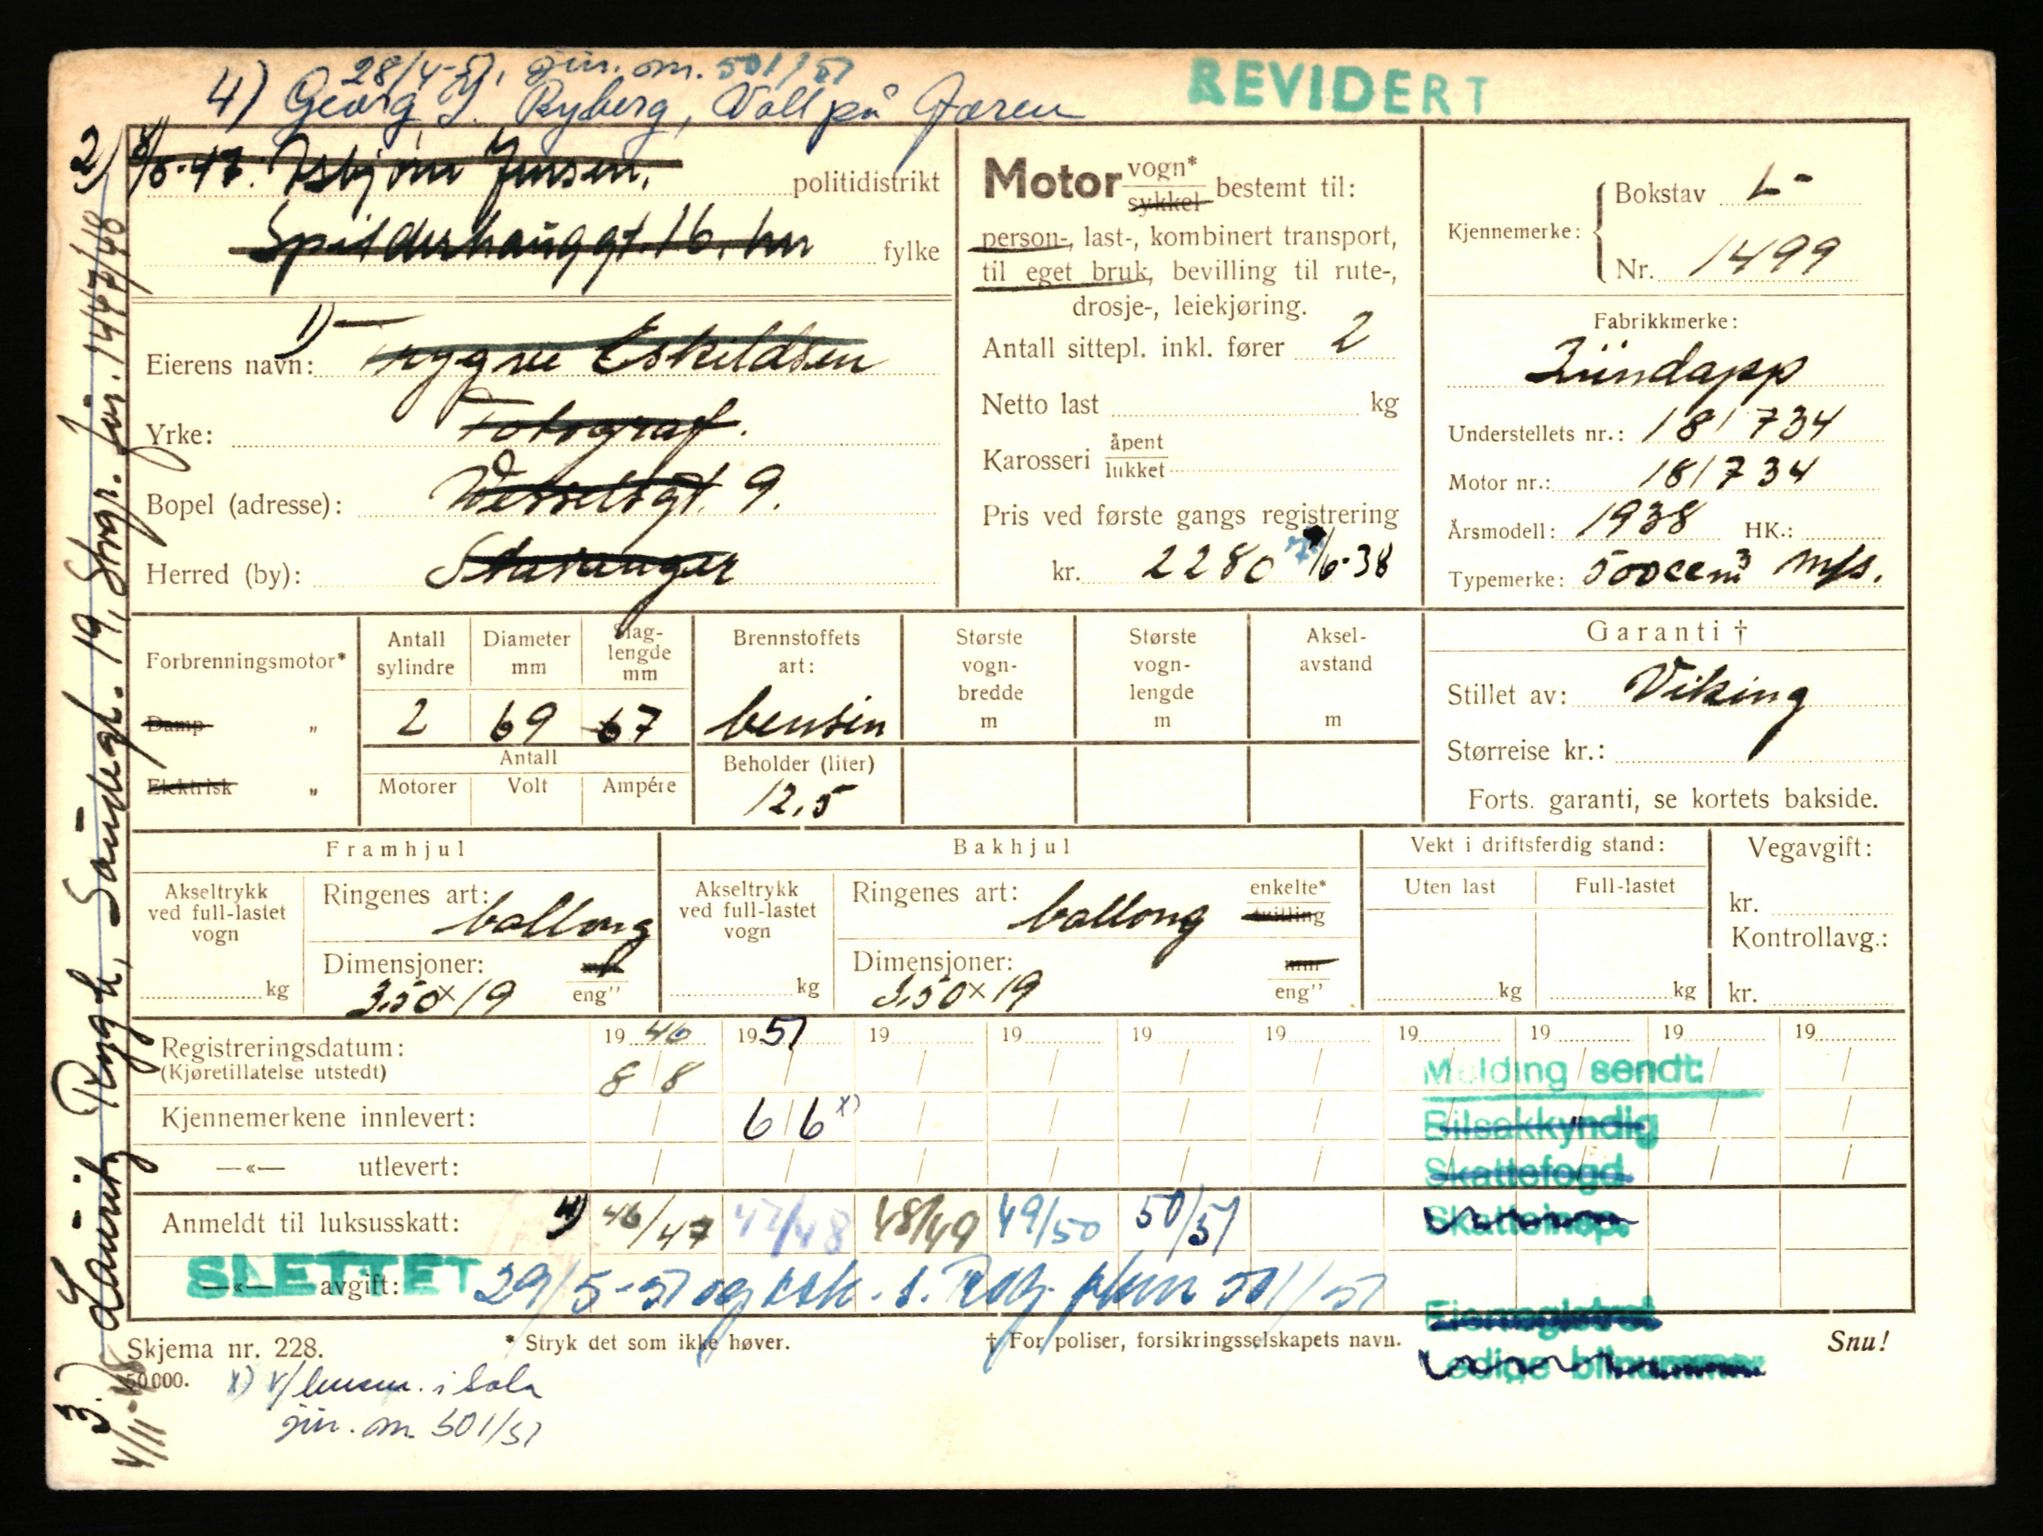 28/4-51, jnr. om. 501/51
4) Georg I. Ryberg, Voll på Jæren
REVIDERT
2) 8/5-47. Asbjørn Jensen.
politidistrikt
Spilderhauggt. 16. her
fylke
1)
Eierens navn: Trygve Eskildsen
Yrke: Fotograf.
Bopel (adresse): Wesselsgt. 9.
Herred (by): Stavanger
Motor vogn* sykkel bestemt til:
person-, last-, kombinert transport,
til eget bruk, bevilling til rute-,
drosje-, leiekjøring.
Antall sittepl. inkl. fører 2
Netto last kg
Karosseri åpent lukket
Pris ved første gangs registrering
kr. 2280 9/6-38
Kjennemerke: Bokstav L-
Nr. 1499
Fabrikkmerke:
Zündapp
Understellets nr.: 181734
Motor nr.: 181734
Årsmodell: 1938 HK.:
Typemerke: 500ccm3 m/s.
Forbrenningsmotor*
Damp "
Elektrisk "
Antall sylindre 2
Diameter mm 69
Slag-lengde mm 67
Antall
Motorer Volt Ampére
Brennstoffets art:
bensin
Beholder (liter)
12,5
Største vogn-bredde m
Største vogn-lengde m
Aksel-avstand m
Garanti †
Stillet av: Viking
Størreise kr.:
Forts. garanti, se kortets bakside.
Framhjul
Akseltrykk ved full-lastet vogn
kg
Ringenes art:
ballong
Dimensjoner: mm eng"
3.50 x 19
Bakhjul
Akseltrykk ved full-lastet vogn
kg
Ringenes art: enkelte* tvilling
ballong
Dimensjoner: mm eng"
3.50 x 19
Vekt i driftsferdig stand:
Uten last Full-lastet
kg kg
Vegavgift:
kr.
Kontrollavg.:
kr.
19 46 19 51 19 19 19 19 19 19 19 19
Registreringsdatum:
(Kjøretillatelse utstedt) 8/8
Kjennemerkene innlevert: 6/6 x)
—«— utlevert:
Anmeldt til luksusskatt: 46/47 47/48 48/49 49/50 50/51
—«— avgift: 29/5-51 og 501/51
SLETTET
Melding sendt:
Bilsakkyndig
Skattefogd
Skatteinsp.
Eierregistret
Ledige bilnummer
Skjema nr. 228.
50000.
* Stryk det som ikke høver.
† For poliser, forsikringsselskapets navn.
Snu!
x) v/lensm. i Sola
jnr. om. 501/51
3) Lauritz Rygh, Sandegt. 19, Stvgr. jnr. 1447/48
4/11-48